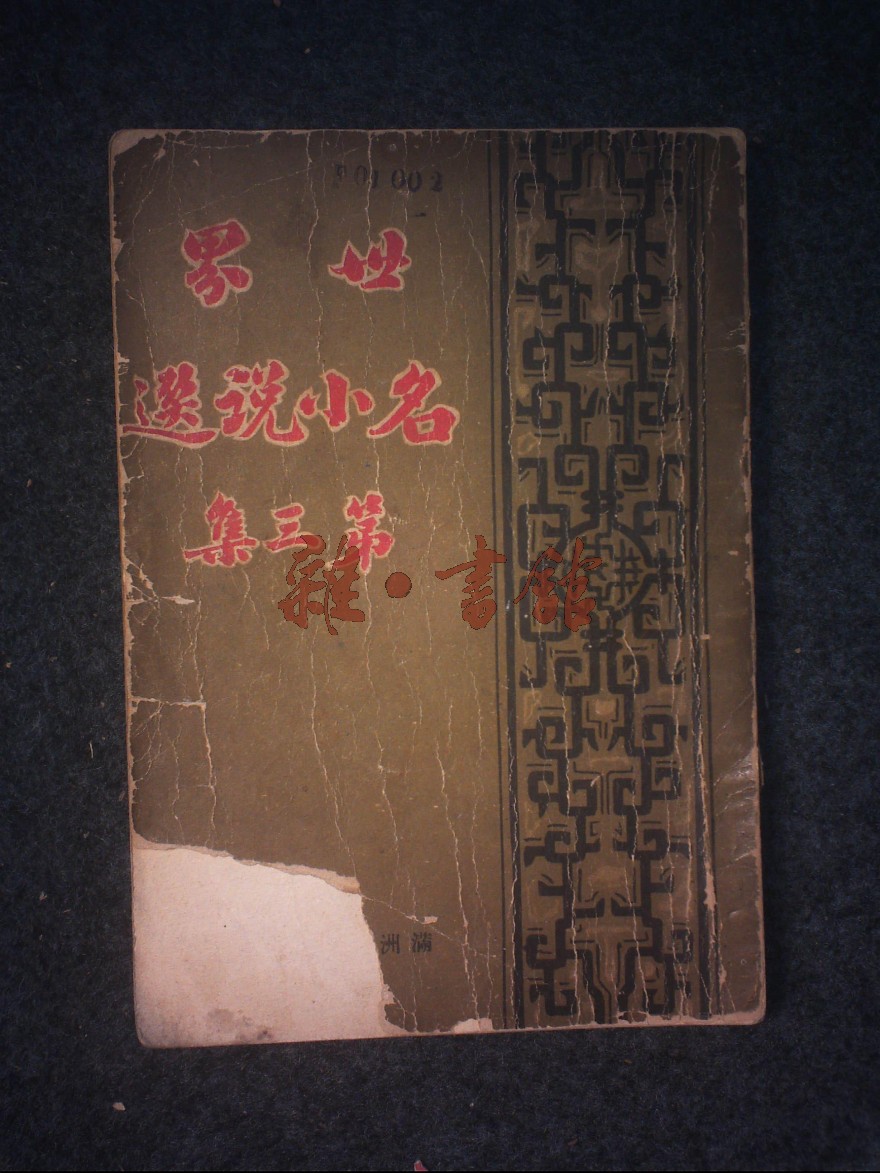 世界
名小說選
第三集
雜·書館
滿洲